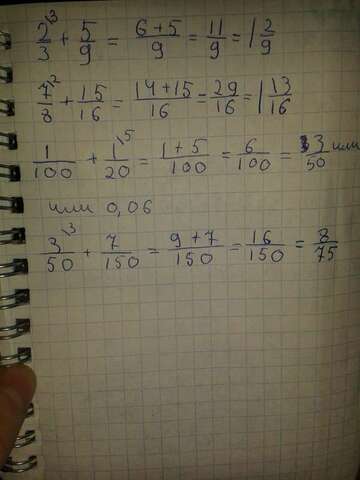 2/3^3 + 5/9 = 6+5/9 = 11/9 = 1 2/9
7/8^2 + 15/16 = 14+15/16 = 29/16 = 1 13/16
1/100 + 1/20^5 = 1+5/100 = 6/100 = 3/50 или
или 0,06
3/50^3 + 7/150 = 9+7/150 = 16/150 = 8/75